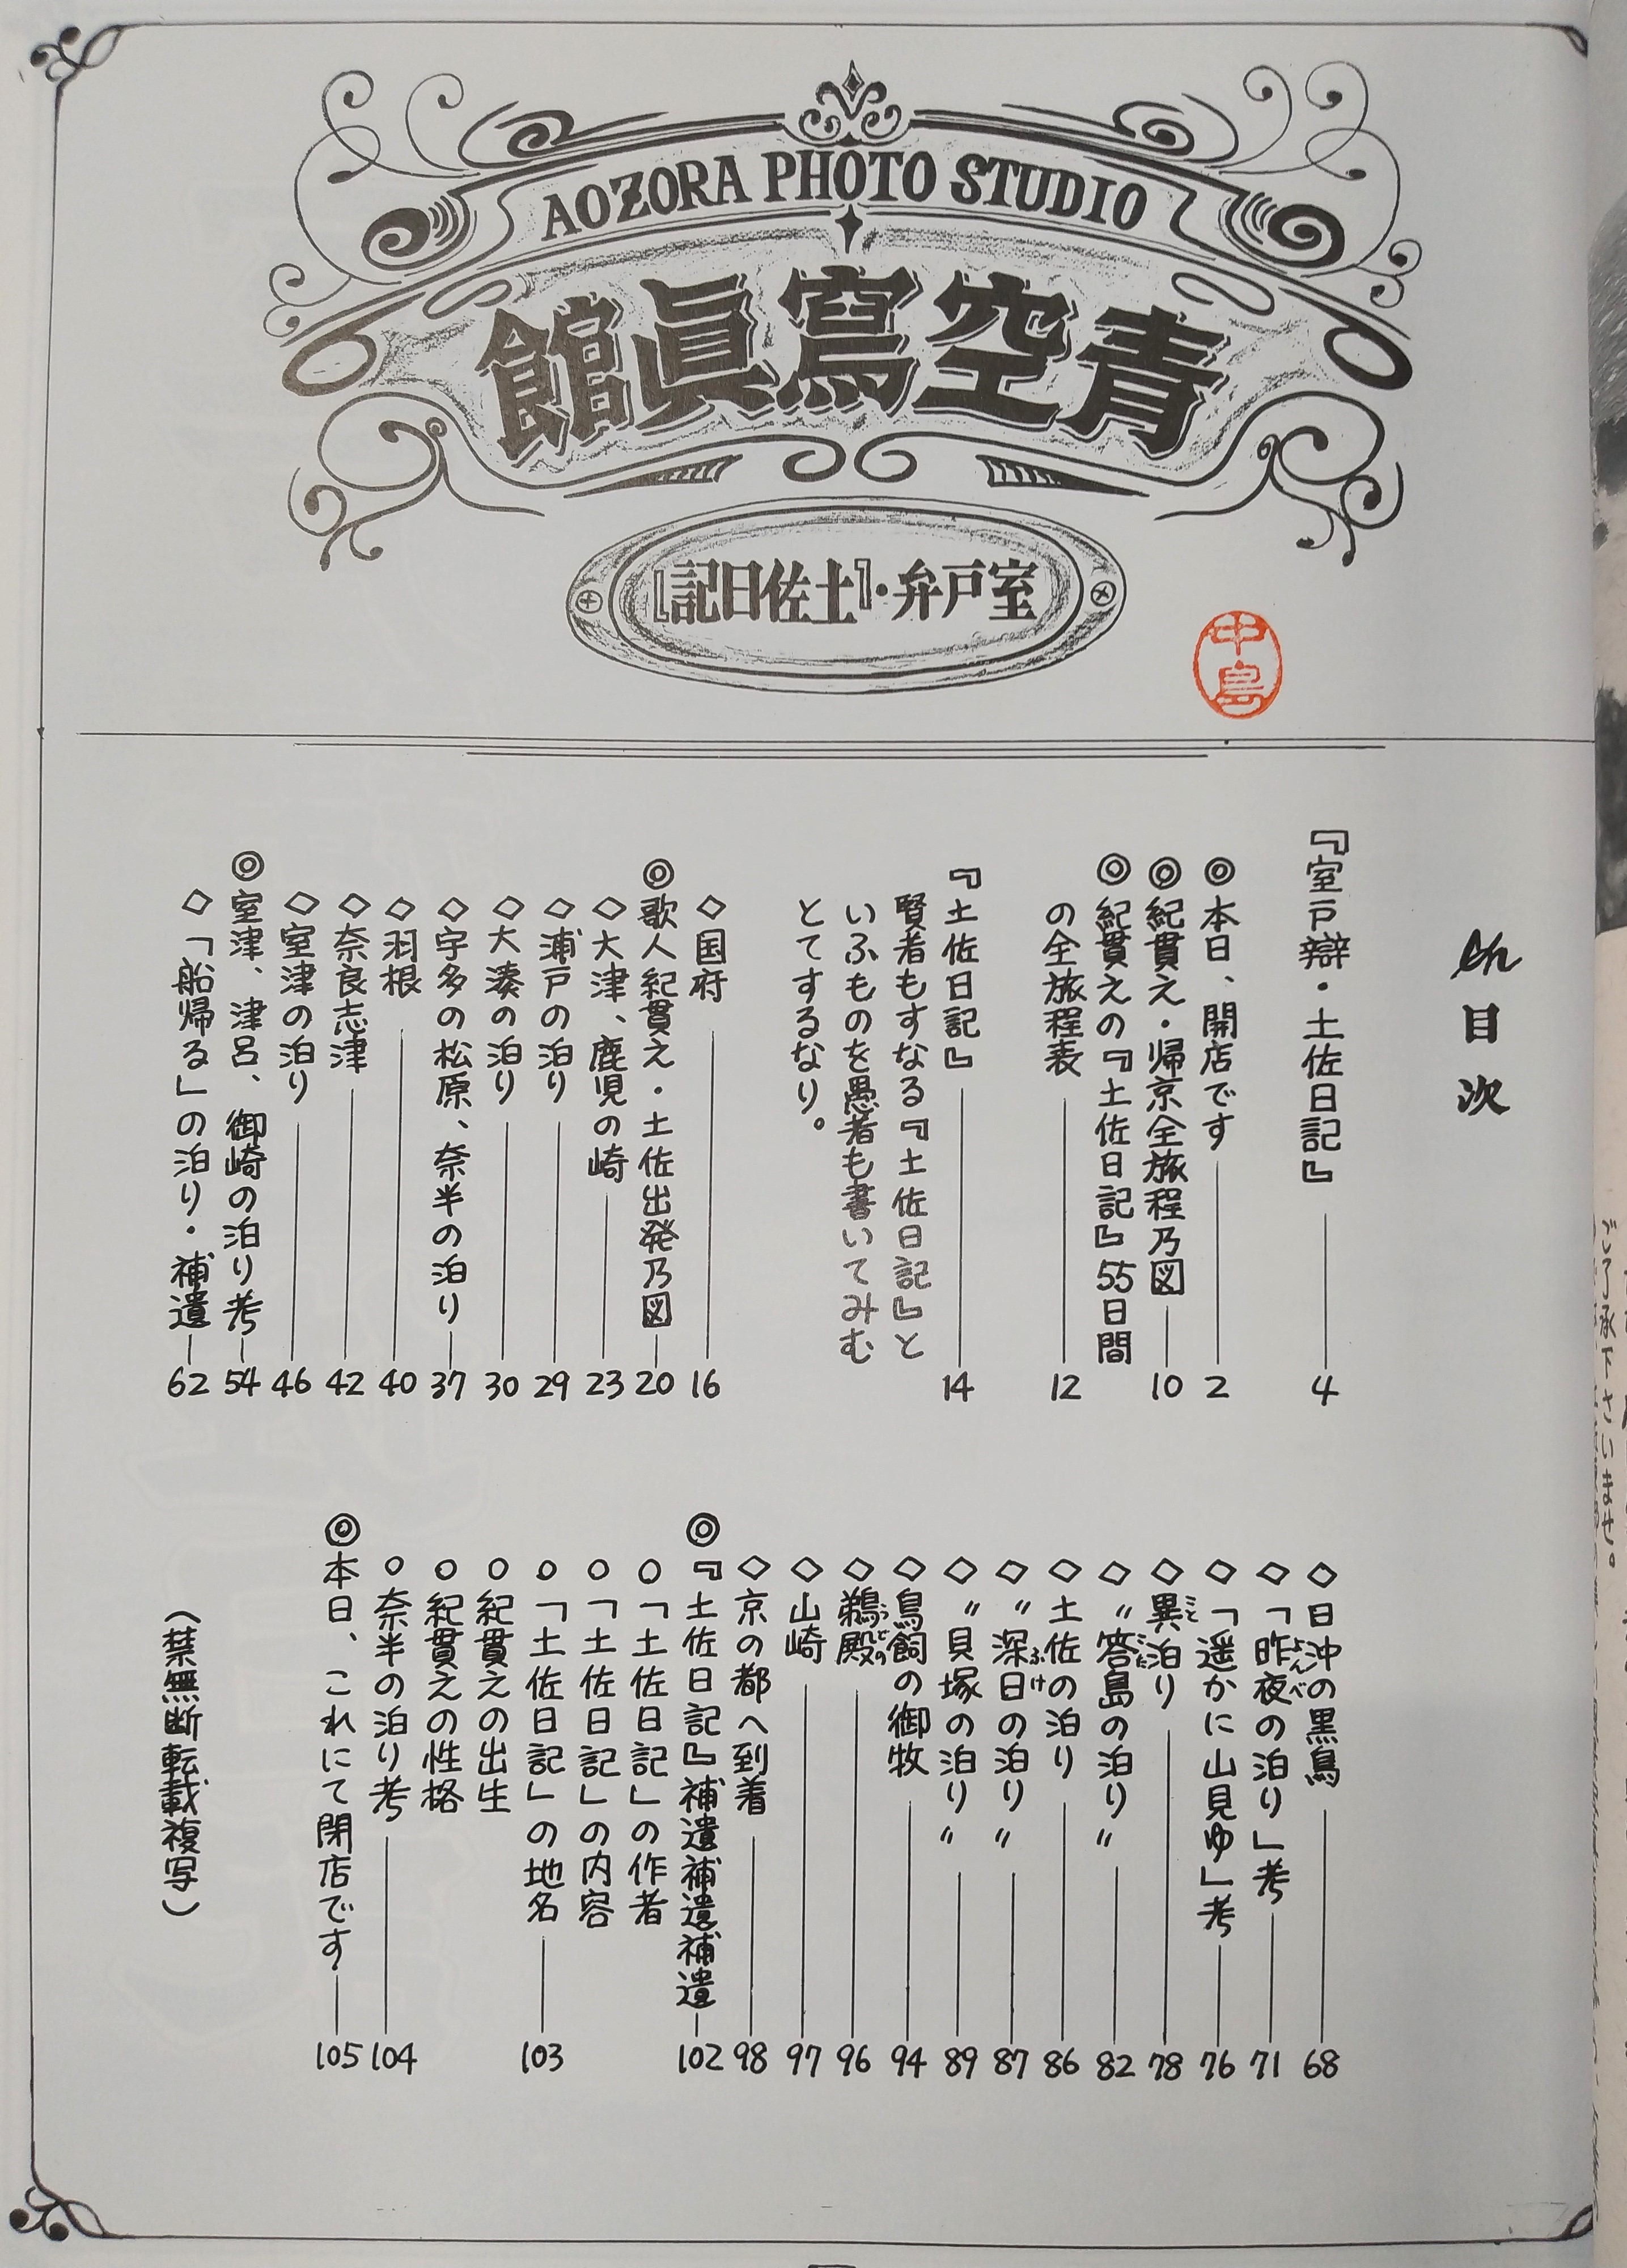 AOZORA PHOTO STUDIO
青空寫眞館
室戸弁・『土佐日記』
中島
目次
『室戸辯・土佐日記』 4
◎本日、開店です 2
◎紀貫之・帰京全旅程乃図 10
◎紀貫之の『土佐日記』55日間
の全旅程表 12
『土佐日記』 14
賢者もすなる『土佐日記』と
いふものを愚者も書いてみむ
とてするなり。
◇国府 16
◎歌人紀貫之・土佐出発乃図 20
◇大津、鹿児の崎 23
◇浦戸の泊り 29
◇大湊の泊り 30
◇宇多の松原、奈半の泊り 37
◇羽根 40
◇奈良志津 42
◇室津の泊り 46
◎室津、津呂、御崎の泊り考 54
◇「船帰る」の泊り・補遺 62
◇日沖の黒鳥 68
◇「昨夜の泊り」考 71
よんべ
◇「遥かに山見ゆ」考 76
◇異泊り 78
こと
◇〝答島の泊り〟 82
こたに
◇土佐の泊り 86
◇〝深日の泊り〟 87
ふけ
◇〝貝塚の泊り〟 89
◇鳥飼の御牧 94
◇鵜殿 96
うどの
◇山崎 97
◇京の都へ到着 98
◎『土佐日記』補遺補遺補遺 102
○「土佐日記」の作者
○「土佐日記」の内容
○「土佐日記」の地名 103
○紀貫之の出生
○紀貫之の性格
○奈半の泊り考 104
◎本日、これにて閉店です 105
（禁無断転載複写）
ご了承下さいませ。